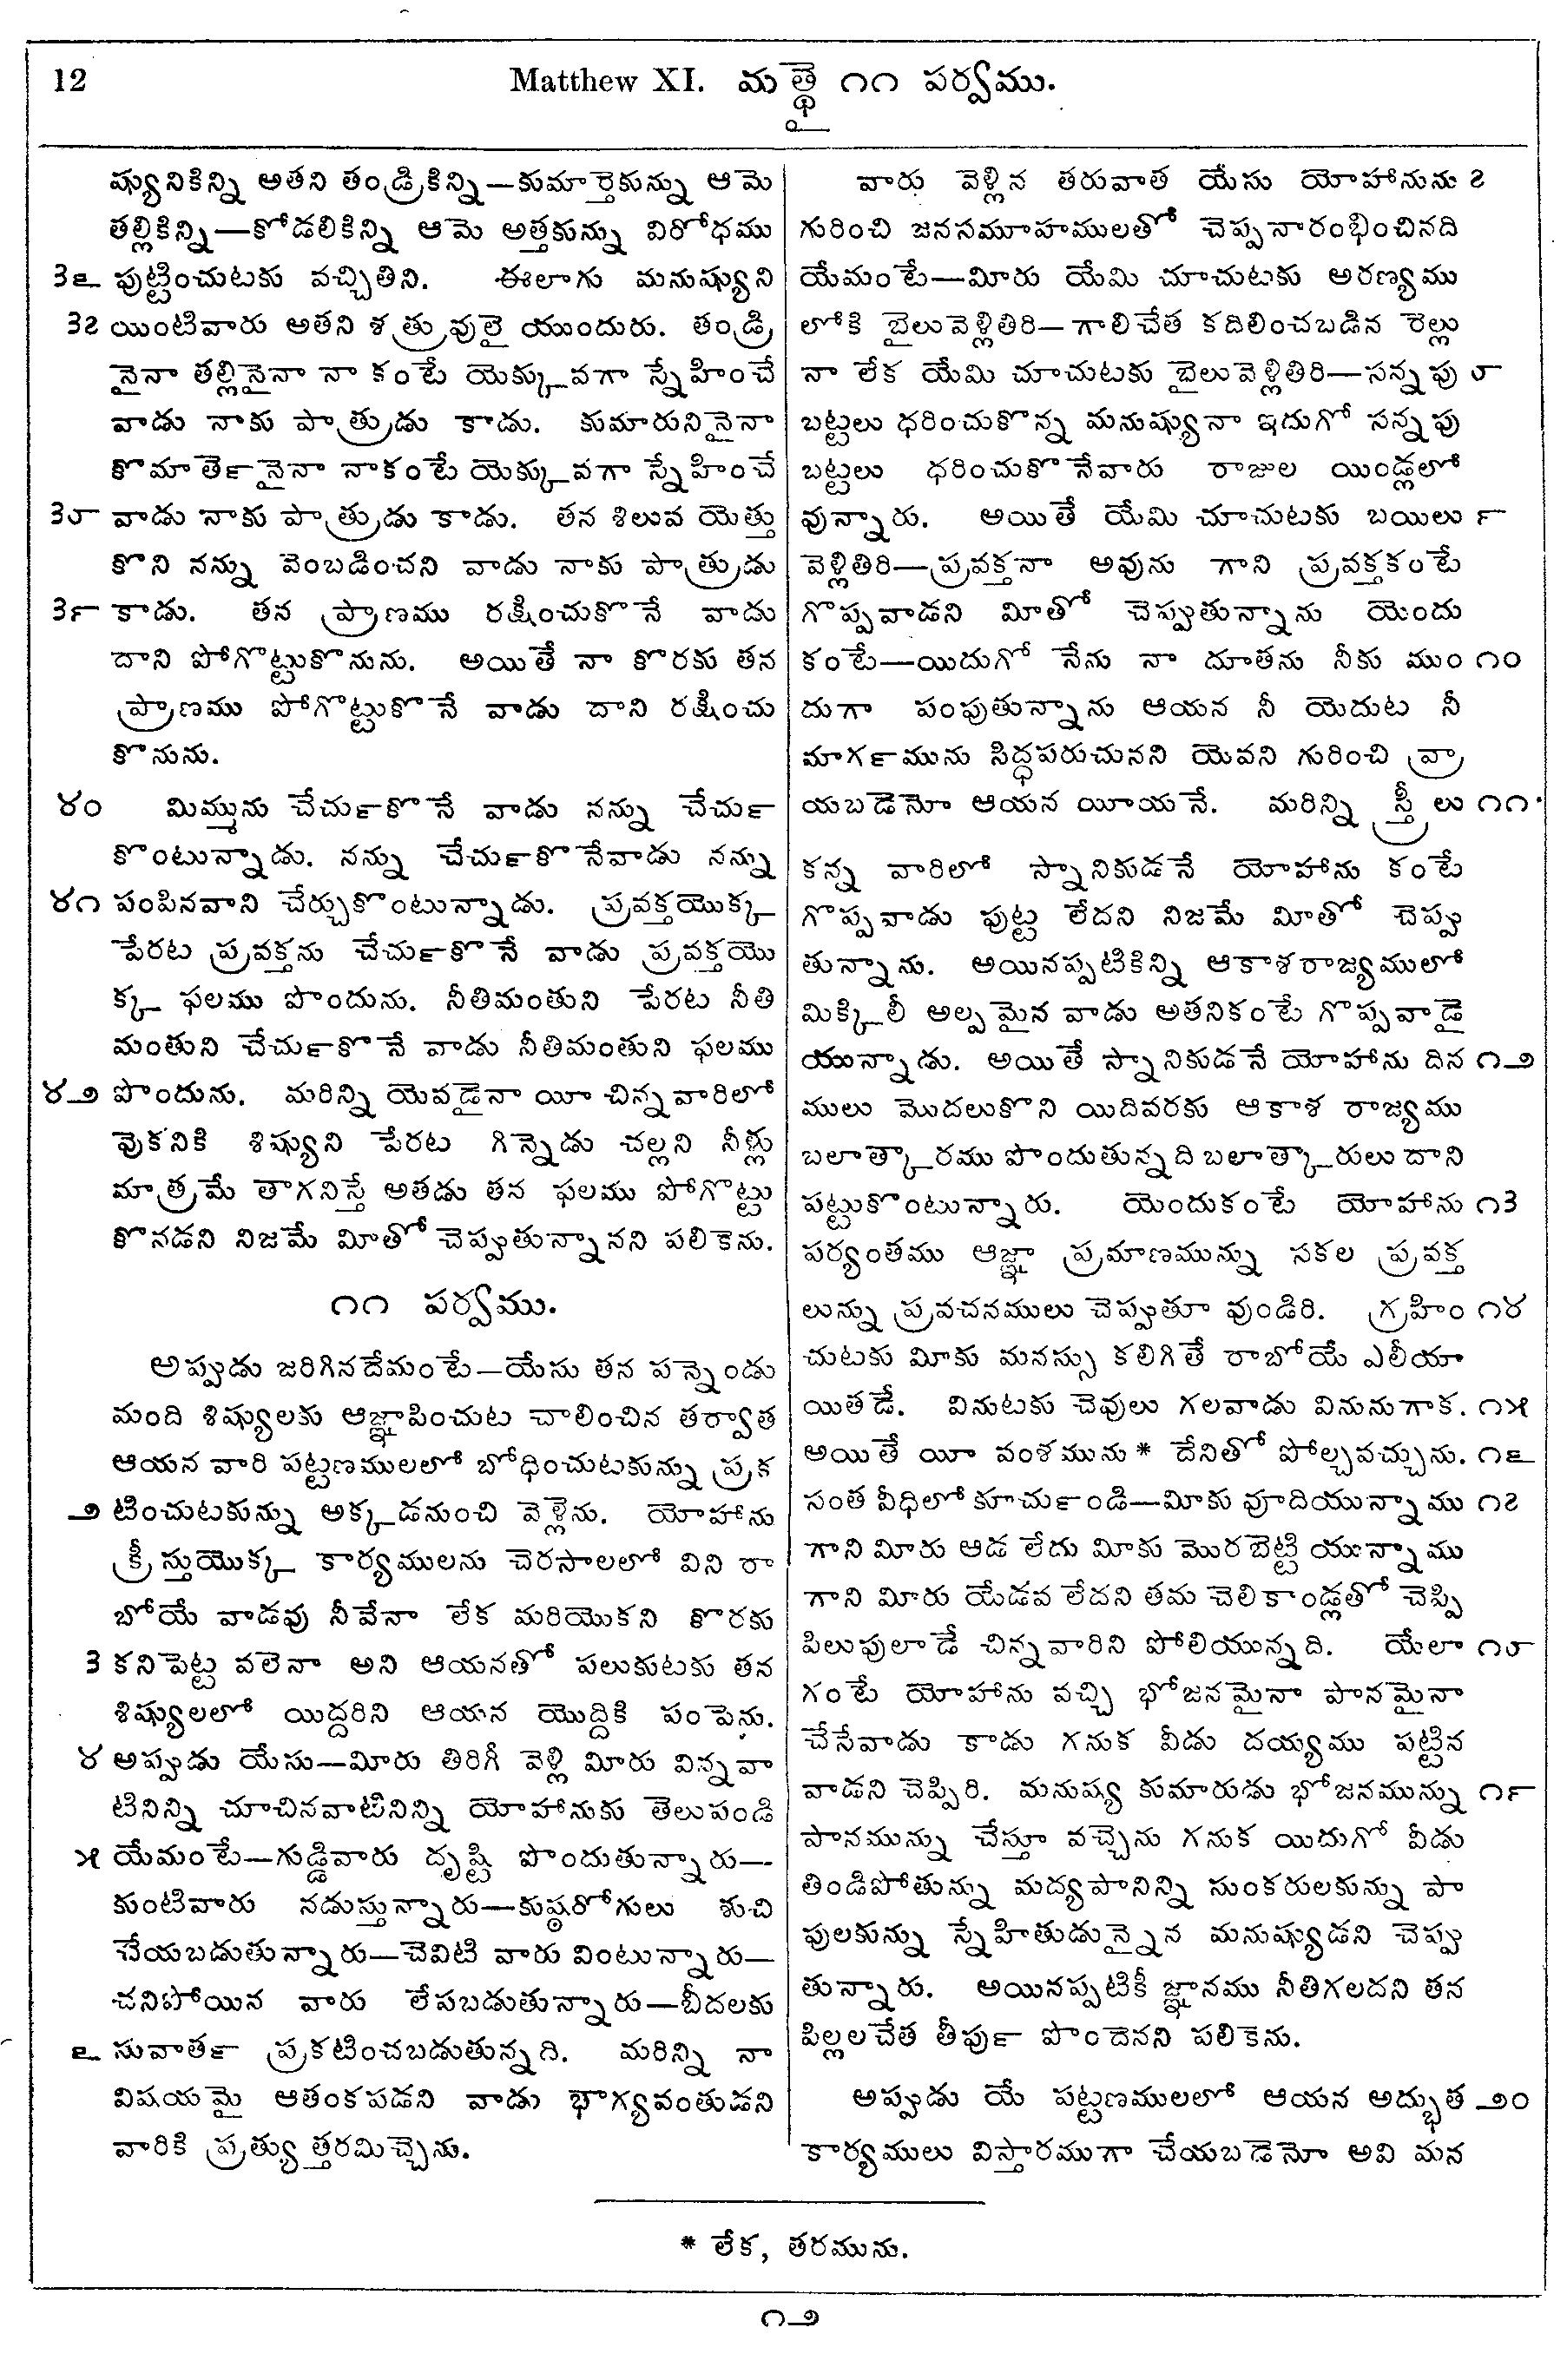 12 Matthew XI. మత్థై ౧౧ పర్వము.
ష్యునికిన్ని అతని తండ్రికిన్ని—కుమార్తెకున్ను ఆమె
తల్లికిన్ని—కోడలికిన్ని ఆమె అత్తకున్ను విరోధము
౩౬ పుట్టించుటకు వచ్చితిని. ఈలాగు మనుష్యుని
౩౭ యింటివారు అతని శత్రువులై యుందురు. తండ్రి
నైనా తల్లినైనా నా కంటే యెక్కువగా స్నేహించే
వాడు నాకు పాత్రుడు కాడు. కుమారునినైనా
కొమాతె౯నైనా నాకంటే యెక్కువగా స్నేహించే
౩౮ వాడు నాకు పాత్రుడు కాడు. తన శిలువ యెత్తు
కొని నన్ను వెంబడించని వాడు నాకు పాత్రుడు
౩౯ కాడు. తన ప్రాణము రక్షించుకొనే వాడు
దాని పోగొట్టుకొనును. అయితే నా కొరకు తన
ప్రాణము పోగొట్టుకొనే వాడు దాని రక్షించు
కొనును.
౪౦ మిమ్మును చేచు౯కొనే వాడు నన్ను చేచు౯
కొంటున్నాడు. నన్ను చేచు౯కొనేవాడు నన్ను
౪౧ పంపినవాని చేర్చుకొంటున్నాడు. ప్రవక్తయొక్క
పేరట ప్రవక్తను చేచు౯కొనే వాడు ప్రవక్తయొ
క్క ఫలము పొందును. నీతిమంతుని పేరట నీతి
మంతుని చేచు౯కొనే వాడు నీతిమంతుని ఫలము
౪౨ పొందును. మరిన్ని యెవడైనా యీ చిన్నవారిలో
వొకనికి శిష్యుని పేరట గిన్నెడు చల్లని నీళ్లు
మాత్రమే తాగనిస్తే అతడు తన ఫలము పోగొట్టు
కొనడని నిజమే మీతో చెప్పుతున్నానని పలికెను.
౧౧ పర్వము.
అప్పుడు జరిగినదేమంటే—యేసు తన పన్నెండు
మంది శిష్యులకు ఆజ్ఞాపించుట చాలించిన తర్వాత
ఆయన వారి పట్టణములలో బోధించుటకున్ను ప్రక
౨ టించుటకున్ను అక్కడనుంచి వెళ్లెను. యోహాను
క్రీస్తుయొక్క కార్యములను చెరసాలలో విని రా
బోయే వాడవు నీవేనా లేక మరియొకని కొరకు
౩ కనిపెట్ట వలెనా అని ఆయనతో పలుకుటకు తన
శిష్యులలో యిద్దరిని ఆయన యొద్దికి పంపెను.
౪ అప్పుడు యేసు—మీరు తిరిగీ వెళ్లి మీరు విన్నవా
టినిన్ని చూచినవాటినిన్ని యోహానుకు తెలుపండి
౫ యేమంటే—గుడ్డివారు దృష్టి పొందుతున్నారు—
కుంటివారు నడుస్తున్నారు—కుష్ఠరోగులు శుచి
చేయబడుతున్నారు—చెవిటి వారు వింటున్నారు—
చనిపోయిన వారు లేపబడుతున్నారు—బీదలకు
౬ సువాత౯ ప్రకటించబడుతున్నది. మరిన్ని నా
విషయమై ఆతంకపడని వాడు భాగ్యవంతుడని
వారికి ప్రత్యుత్తరమిచ్చెను.
వారు వెళ్లిన తరువాత యేసు యోహానును ౭
గురించి జనసమూహములతో చెప్పనారంభించినది
యేమంటే—మీరు యేమి చూచుటకు అరణ్యము
లోకి బైలువెళ్లితిరి—గాలిచేత కదిలించబడిన రెల్లు
నా లేక యేమి చూచుటకు బైలువెళ్లితిరి—సన్నపు ౮
బట్టలు ధరించుకొన్న మనుష్యునా ఇదుగో సన్నపు
బట్టలు ధరించుకొనేవారు రాజుల యిండ్లలో
వున్నారు. అయితే యేమి చూచుటకు బయిలు ౯
వెళ్లితిరి—ప్రవక్తనా అవును గాని ప్రవక్తకంటే
గొప్పవాడని మీతో చెప్పుతున్నాను యెందు
కంటే—యిదుగో నేను నా దూతను నీకు ముం ౧౦
దుగా పంపుతున్నాను ఆయన నీ యెదుట నీ
మాగ౯మును సిద్ధపరుచునని యెవని గురించి వ్రా
యబడెనో ఆయన యీయనే. మరిన్ని స్త్రీలు ౧౧
కన్న వారిలో స్నానికుడనే యోహాను కంటే
గొప్పవాడు పుట్ట లేదని నిజమే మీతో చెప్పు
తున్నాను. అయినప్పటికిన్ని ఆకాశరాజ్యములో
మిక్కిలీ అల్పమైన వాడు అతనికంటే గొప్పవాడై
యున్నాడు. అయితే స్నానికుడనే యోహాను దిన ౧౨
ములు మొదలుకొని యిదివరకు ఆకాశ రాజ్యము
బలాత్కారము పొందుతున్నది బలాత్కారులు దాని
పట్టుకొంటున్నారు. యెందుకంటే యోహాను ౧౩
పర్యంతము ఆజ్ఞా ప్రమాణమున్ను సకల ప్రవక్త
లున్ను ప్రవచనములు చెప్పుతూ వుండిరి. గ్రహిం ౧౪
చుటకు మీకు మనస్సు కలిగితే రాబోయే ఎలీయా
యితడే. వినుటకు చెవులు గలవాడు వినునుగాక. ౧౫
అయితే యీ వంశమును* దేనితో పోల్చవచ్చును. ౧౬
సంత వీధిలో కూచు౯ండి—మీకు వూదియున్నాము ౧౭
గాని మీరు ఆడ లేదు మీకు మొరబెట్టి యున్నాము
గాని మీరు యేడవ లేదని తమ చెలికాండ్లతో చెప్పి
పిలుపులాడే చిన్నవారిని పోలియున్నది. యేలా ౧౮
గంటే యోహాను వచ్చి భోజనమైనా పానమైనా
చేసేవాడు కాడు గనుక వీడు దయ్యము పట్టిన
వాడని చెప్పిరి. మనుష్య కుమారుడు భోజనమున్ను ౧౯
పానమున్ను చేస్తూ వచ్చెను గనుక యిదుగో వీడు
తిండిపోతున్ను మద్యపానిన్ని సుంకరులకున్ను పా
పులకున్ను స్నేహితుడున్నైన మనుష్యుడని చెప్పు
తున్నారు. అయినప్పటికీ జ్ఞానము నీతిగలదని తన
పిల్లలచేత తీపు౯ పొందెనని పలికెను.
అప్పుడు యే పట్టణములలో ఆయన అద్భుత ౨౦
కార్యములు విస్తారముగా చేయబడెనో అవి మన
* లేక, తరమును.
౧౨